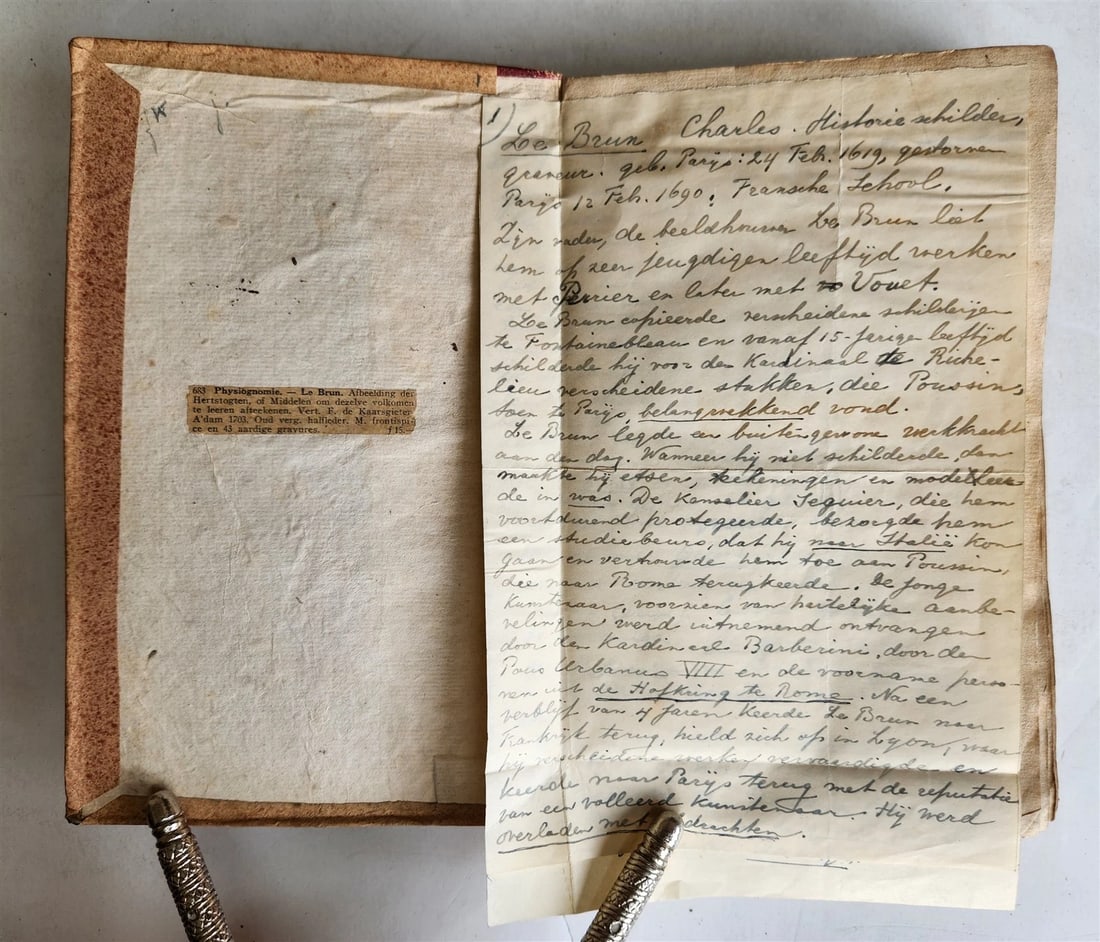 683 Physiognomie. — Le Brun. Afbeelding der
Hertstogten, of Middelen om dezelve volkomen
te leeren afteekenen. Vert. F. de Kaarsgieter
A'dam 1703. Oud verg. halfleder. M. frontispi-
ce en 43 aardige gravures.
1) Le Brun Charles. Historieschilder,
graveur. geb. Parijs: 24 Feb. 1619, gestorven
Parijs 12 Feb. 1690; Fransche School.
Zijn vader, de beeldhouwer Le Brun liet
hem op zeer jeugdigen leeftijd werken
met Perrier en later met Vouet.
Le Brun copieerde verscheidene schilderijen
te Fontainebleau en vanaf 15-jarige leeftijd
schilderde hij voor den Kardinaal de Riche-
lieu verscheidene stukken, die Poussin,
toen te Parijs belangwekkend vond.
Le Brun legde en buitengewone werkkracht
aan den dag. Wanneer hij niet schilderde, dan
maakte hij etsen, teekeningen en modelleer
de in was. De Kanselier Seguier, die hem
voortdurend protegeerde, bezorgde hem
een studiebeurs, dat hij naar Italië kon
gaan en vertrouwde hem toe aan Poussin,
die naar Rome terugkeerde. De jonge
Kunstenaar, voorzien van hartelijke aanbe-
velingen werd uitnemend ontvangen
door den Kardinael Barberini, door den
Paus Urbanus VIII en de voorname perso-
nen uit de Hofkring te Rome. Na een
verblijf van 4 jaren keerde Le Brun naar
Frankrijk terug, hield zich op in Lyon, waar
hij verscheidene werken vervaardigde en
keerde naar Parijs terug met de reputatie
van een volleerd Kunstenaar. Hij werd
overladen met drachten.